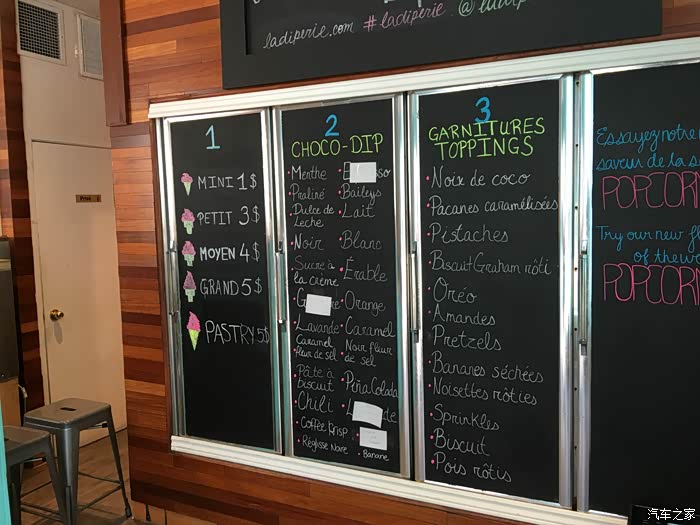 ladiperie.com #ladiperie @ladip
Privé
1
MINI 1$
PETIT 3$
MOYEN 4$
GRAND 5$
PASTRY 5$
2
CHOCO-DIP
• Menthe
• Praliné
• Dulce de
Leche
• Noir
• Sucre à
la crème
• Lavande
• Caramel
fleur de sel
• Pâte à
biscuit
• Chili
• Coffee Crisp
• Réglisse Noire
• Baileys
• Lait
• Blanc
• Érable
• Orange
• Caramel
• Noir fleur
de sel
• Piña Colada
• Banane
3
GARNITURES
TOPPINGS
• Noix de coco
• Pacanes caramélisées
• Pistaches
• Biscuit Graham rôti
• Oréo
• Amandes
• Pretzels
• Bananes séchées
• Noisettes rôties
• Sprinkles
• Biscuit
• Pois rôtis
Essayez notre
saveur de la s
POPCORN
Try our new fl
of the we
POPCORN
汽车之家